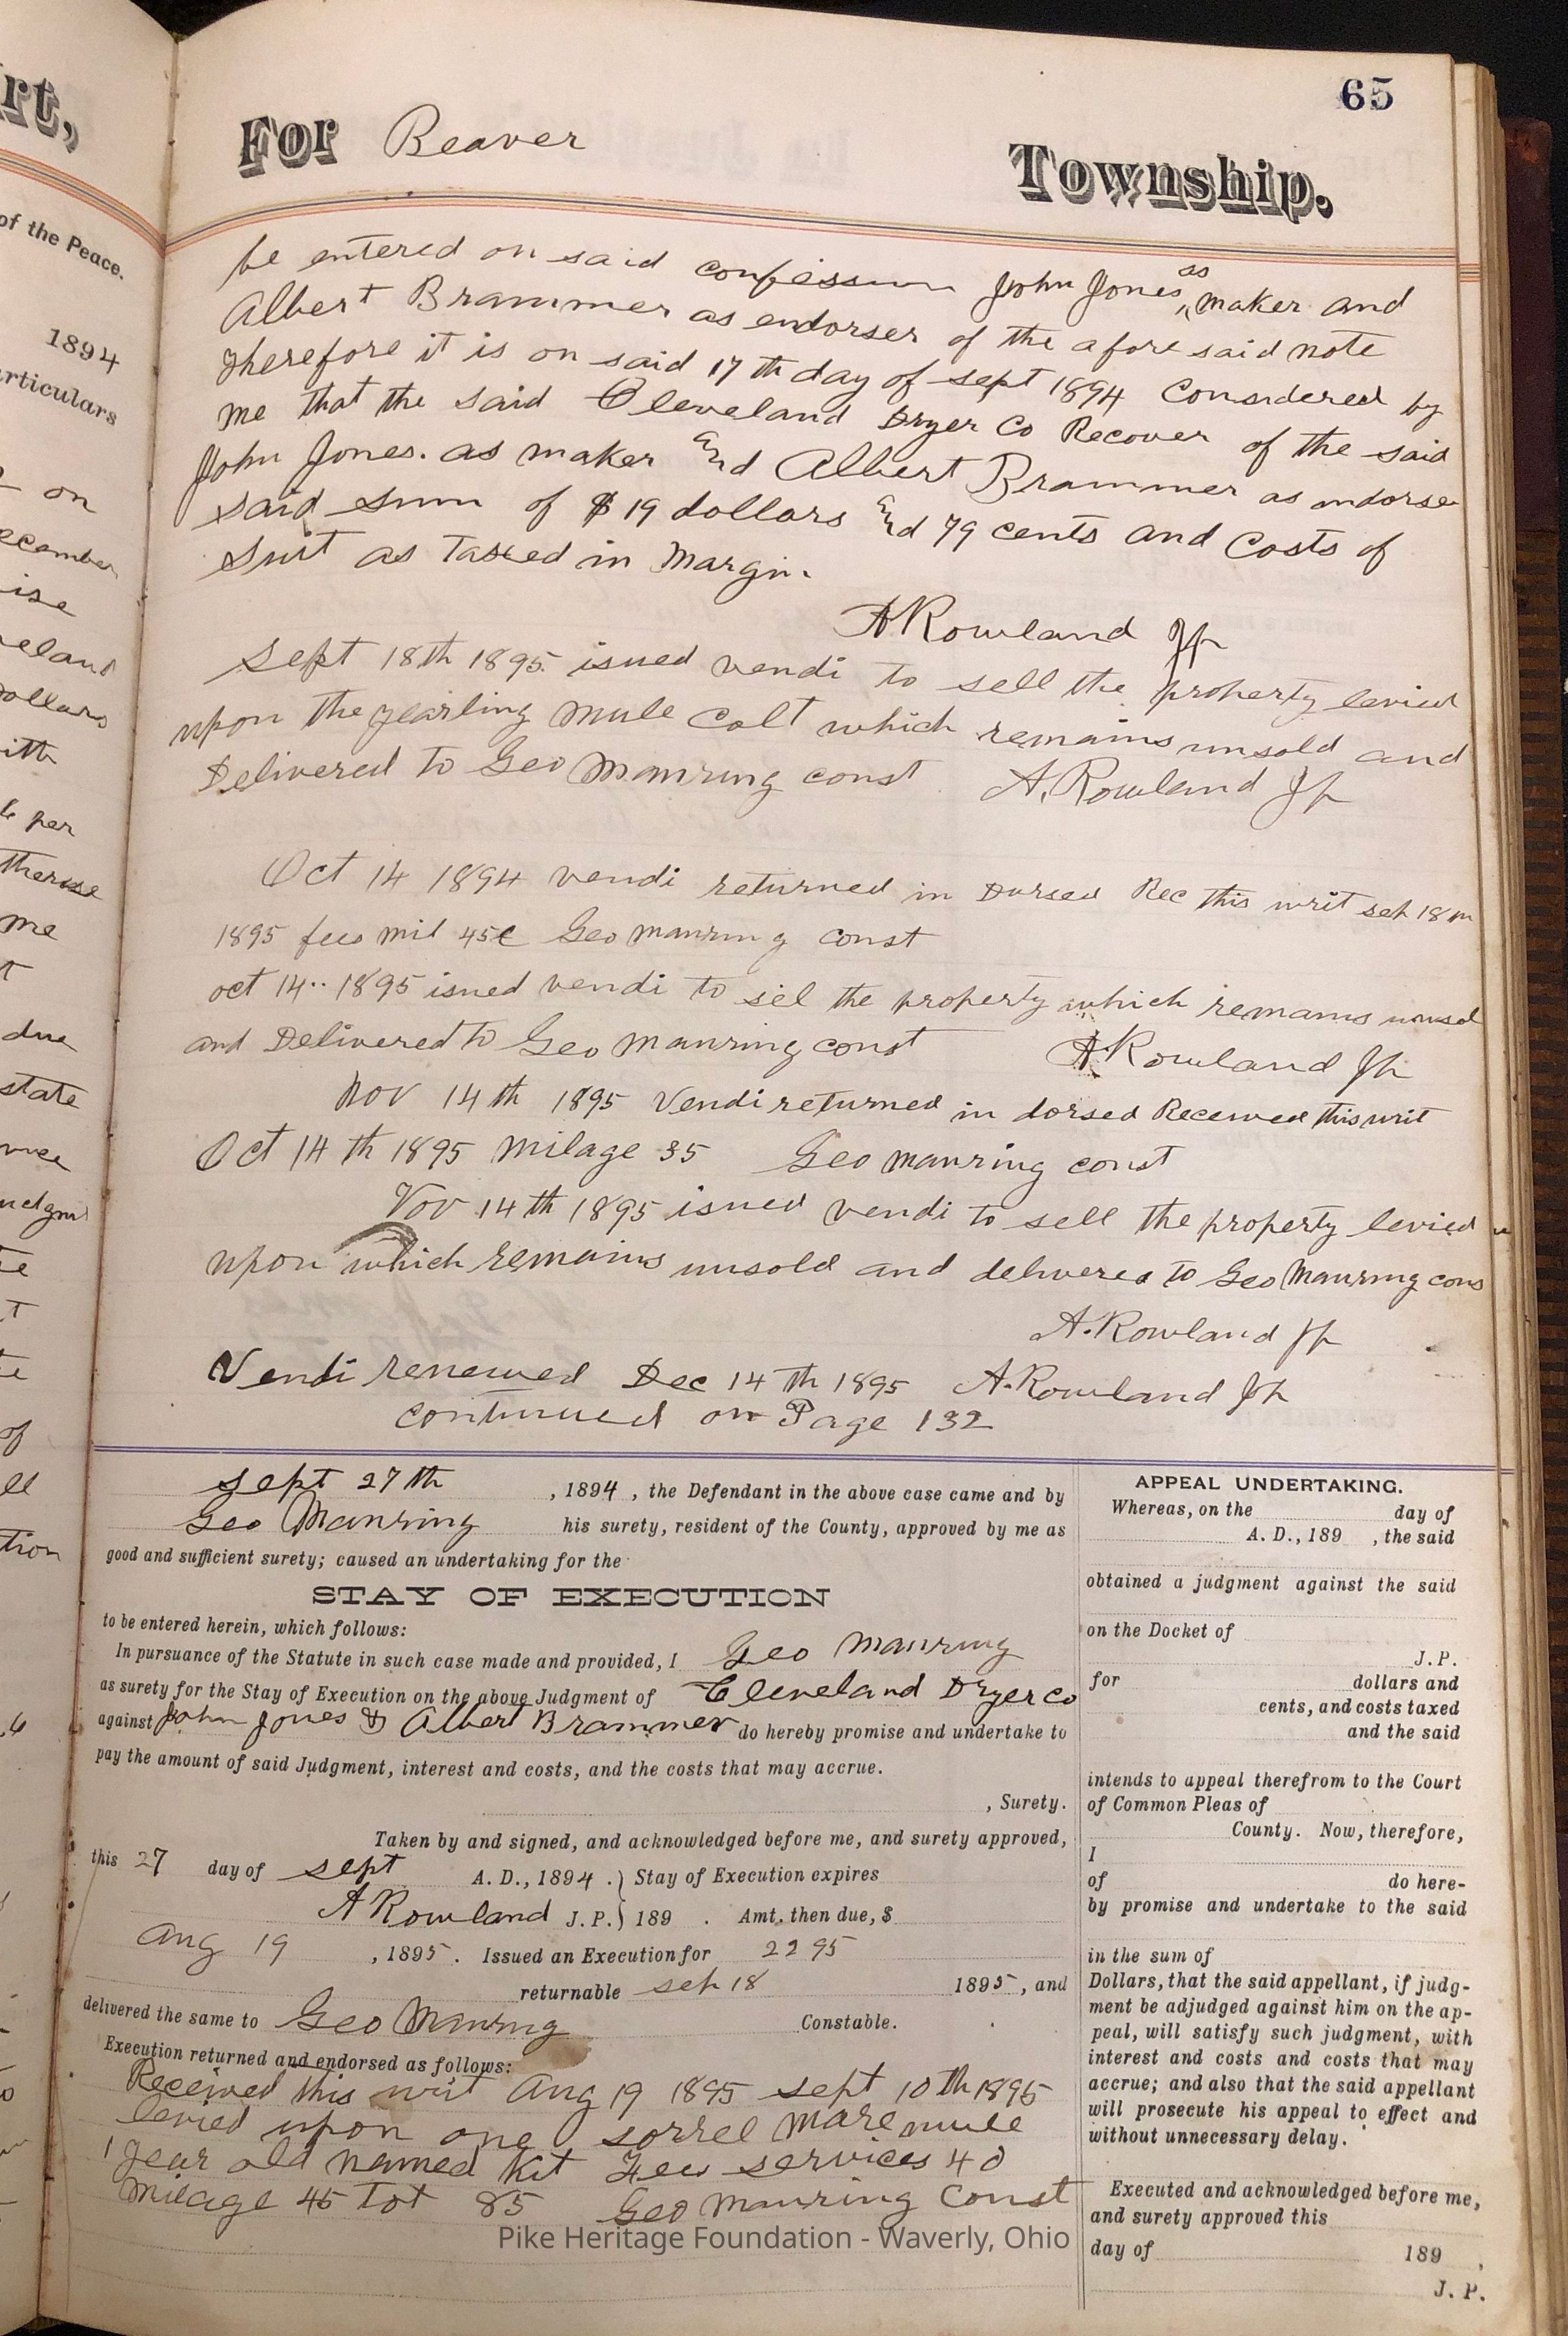 65
For Beaver Township.
be entered on said confession John Jones as maker and
Albert Brammer as endorser of the afore said note
Therefore it is on said 17th day of sept 1894 Considered by
me that the said Cleveland Dryer Co Recover of the said
John Jones. as maker and Albert Brammer as endorse
said sum of $19 dollars and 79 cents and Costs of
Suit as Taxed in Margin.
A Rowland Jp
Sept 18th 1895 issued vendi to sell the property levied
upon the yearling mule Colt which remains unsold and
Delivered to Geo Manring const A. Rowland Jp
Oct 14 1894 vendi returned in Dorsed Rec this writ sep 18th
1895 fees mil 45c Geo Manring const
oct 14.. 1895 issued vendi to sel the property which remains
and Delivered to Geo Manring const A Rowland Jp
Nov 14th 1895 Vendi returned in dorsed Received this writ
Oct 14th 1895 Milage 35 Geo Manring const
Nov 14th 1895 issued vendi to sell the property levied
upon which remains unsold and delivered to Geo Manring cons
A. Rowland Jp
Vendi renewed Dec 14th 1895 A. Rowland Jp
continued on Page 132
sept 27th , 1894 , the Defendant in the above case came and by
Geo Manring his surety, resident of the County, approved by me as
good and sufficient surety; caused an undertaking for the
STAY OF EXECUTION
to be entered herein, which follows:
In pursuance of the Statute in such case made and provided, I Geo Manring
as surety for the Stay of Execution on the above Judgment of Cleveland Dryer Co
against John Jones & Albert Brammer do hereby promise and undertake to
pay the amount of said Judgment, interest and costs, and the costs that may accrue.
, Surety.
Taken by and signed, and acknowledged before me, and surety approved,
this 27 day of sept A. D., 1894 . } Stay of Execution expires
A Rowland J. P. } 189 . Amt. then due, $
Aug 19 , 1895 . Issued an Execution for 22 95
returnable sep 18 1895 , and
delivered the same to Geo Manring Constable.
Execution returned and endorsed as follows:
Received this writ Aug 19 1895 sept 10th 1895
levied upon one sorrel mare mule
1 year old named Kit Fees services 40
Milage 45 tot 85 Geo Manring Const
APPEAL UNDERTAKING.
Whereas, on the day of
A. D., 189 , the said
obtained a judgment against the said
on the Docket of
J. P.
for dollars and
cents, and costs taxed
and the said
intends to appeal therefrom to the Court
of Common Pleas of
County. Now, therefore,
I
of do here-
by promise and undertake to the said
in the sum of
Dollars, that the said appellant, if judg-
ment be adjudged against him on the ap-
peal, will satisfy such judgment, with
interest and costs and costs that may
accrue; and also that the said appellant
will prosecute his appeal to effect and
without unnecessary delay.
Executed and acknowledged before me,
and surety approved this
day of 189 ,
J. P.
Pike Heritage Foundation - Waverly, Ohio